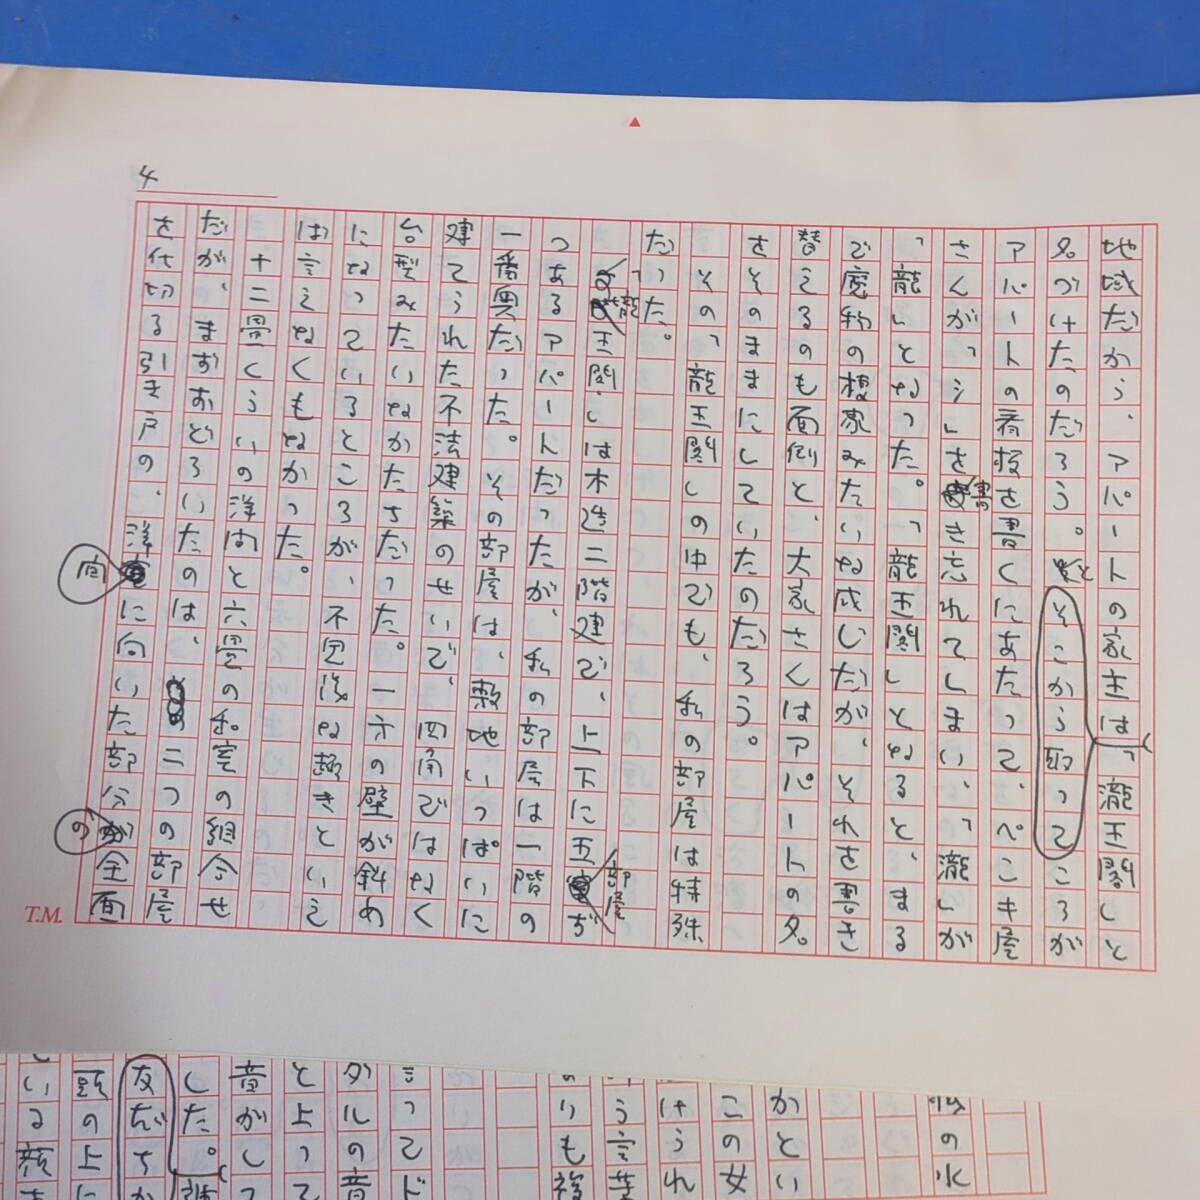 4
地域だから、アパートの家主は、そこから取って「瀧王閣」と
名づけたのだろう。ところが
アパートの看板を書くにあたって、ペンキ屋
さんが「シ」を書き忘れてしまい、「瀧」が
「龍」となった。「龍王閣」となると、まる
で魔物の棲家みたいな感じだが、それを書き
替えるのも面倒と、大家さんはアパートの名
をそのままにしていたのだろう。
その「龍王閣」の中でも、私の部屋は特殊
だった。
「龍王閣」は木造二階建で、上下に五部屋ず
つあるアパートだったが、私の部屋は一階の
一番奥だった。その部屋は、敷地いっぱいに
建てられた不法建築のせいで、四角ではなく
台型みたいなかたちだった。一方の壁が斜め
になっているところが、不思議な趣きといえ
ば言えなくもなかった。
十二畳くらいの洋間と六畳の和室の組合せ
だが、まずおどろいたのは、二つの部屋
を仕切る引き戸の、洋間に向いた部分の全面
T.M.
の水
かとい
この女
けられ
う言葉
りも
って
ダルの音
と上って
音がして
した。
友だちか
頭の上に
いる顔